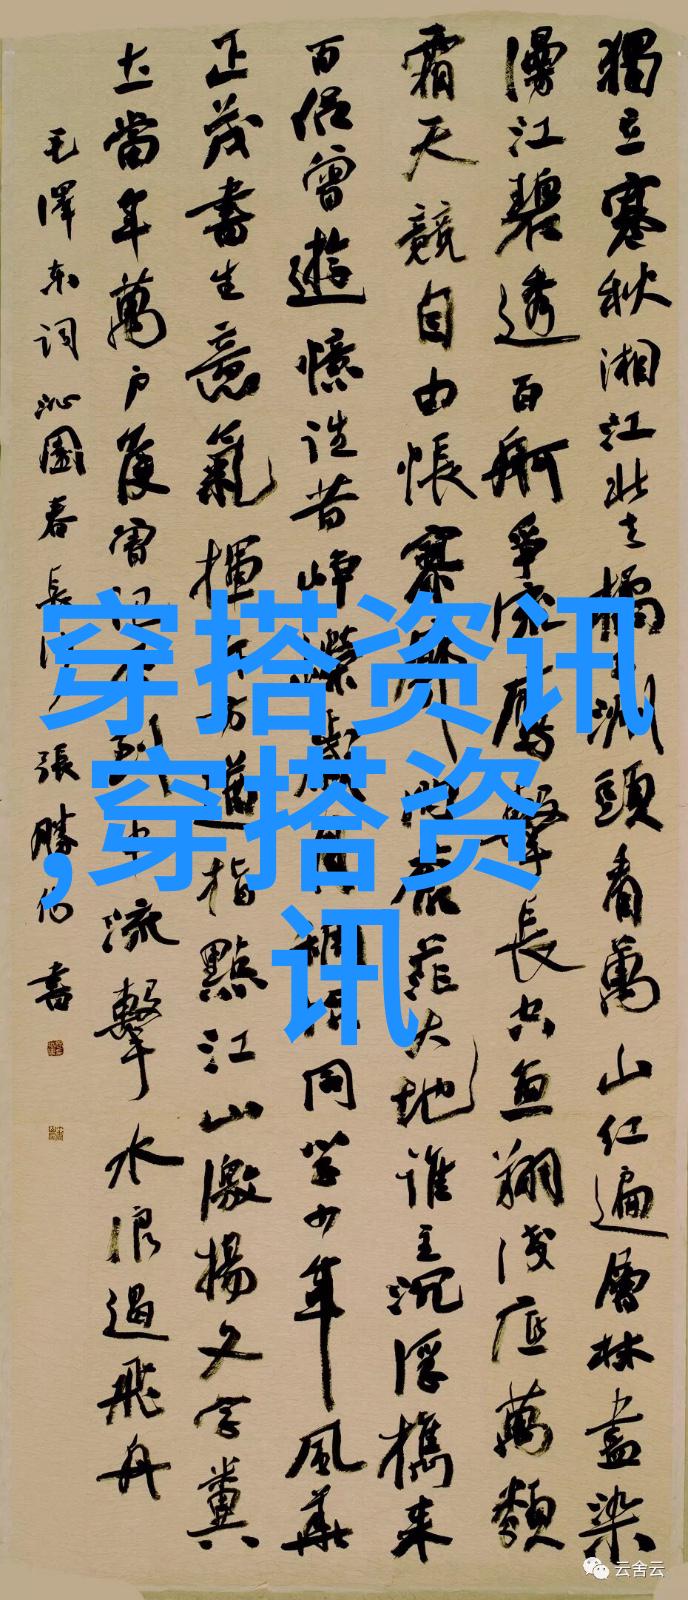 獨立寒秋湘江北去橘子洲頭看萬山红遍層林盡染
漫江碧透百舸爭流鹰擊長空魚翔淺底萬類
霜天競自由悵寥廓問蒼茫大地誰主沉浮攜来
百侣曾遊憶往昔崢嶸歲月稠恰同学少年風華
正茂書生意氣揮斥方遒指點江山激揚文字糞
土當年萬户侯曾记否到中流擊水浪遏飛舟
毛澤东词沁園春長沙張勝書
穿搭资讯
,穿搭资
讯
云舍云